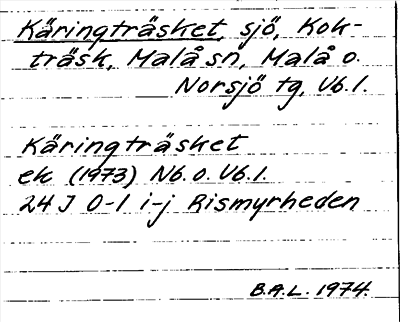 Käringträsket, sjö, Kok-
träsk, Malå sn, Malå o.
Norsjö tg, Vb. l.
Käringträsket
ek (1973) Nb. o. Vb. l.
24 J 0-1 i-j Rismyrheden
B.A.L. 1974.